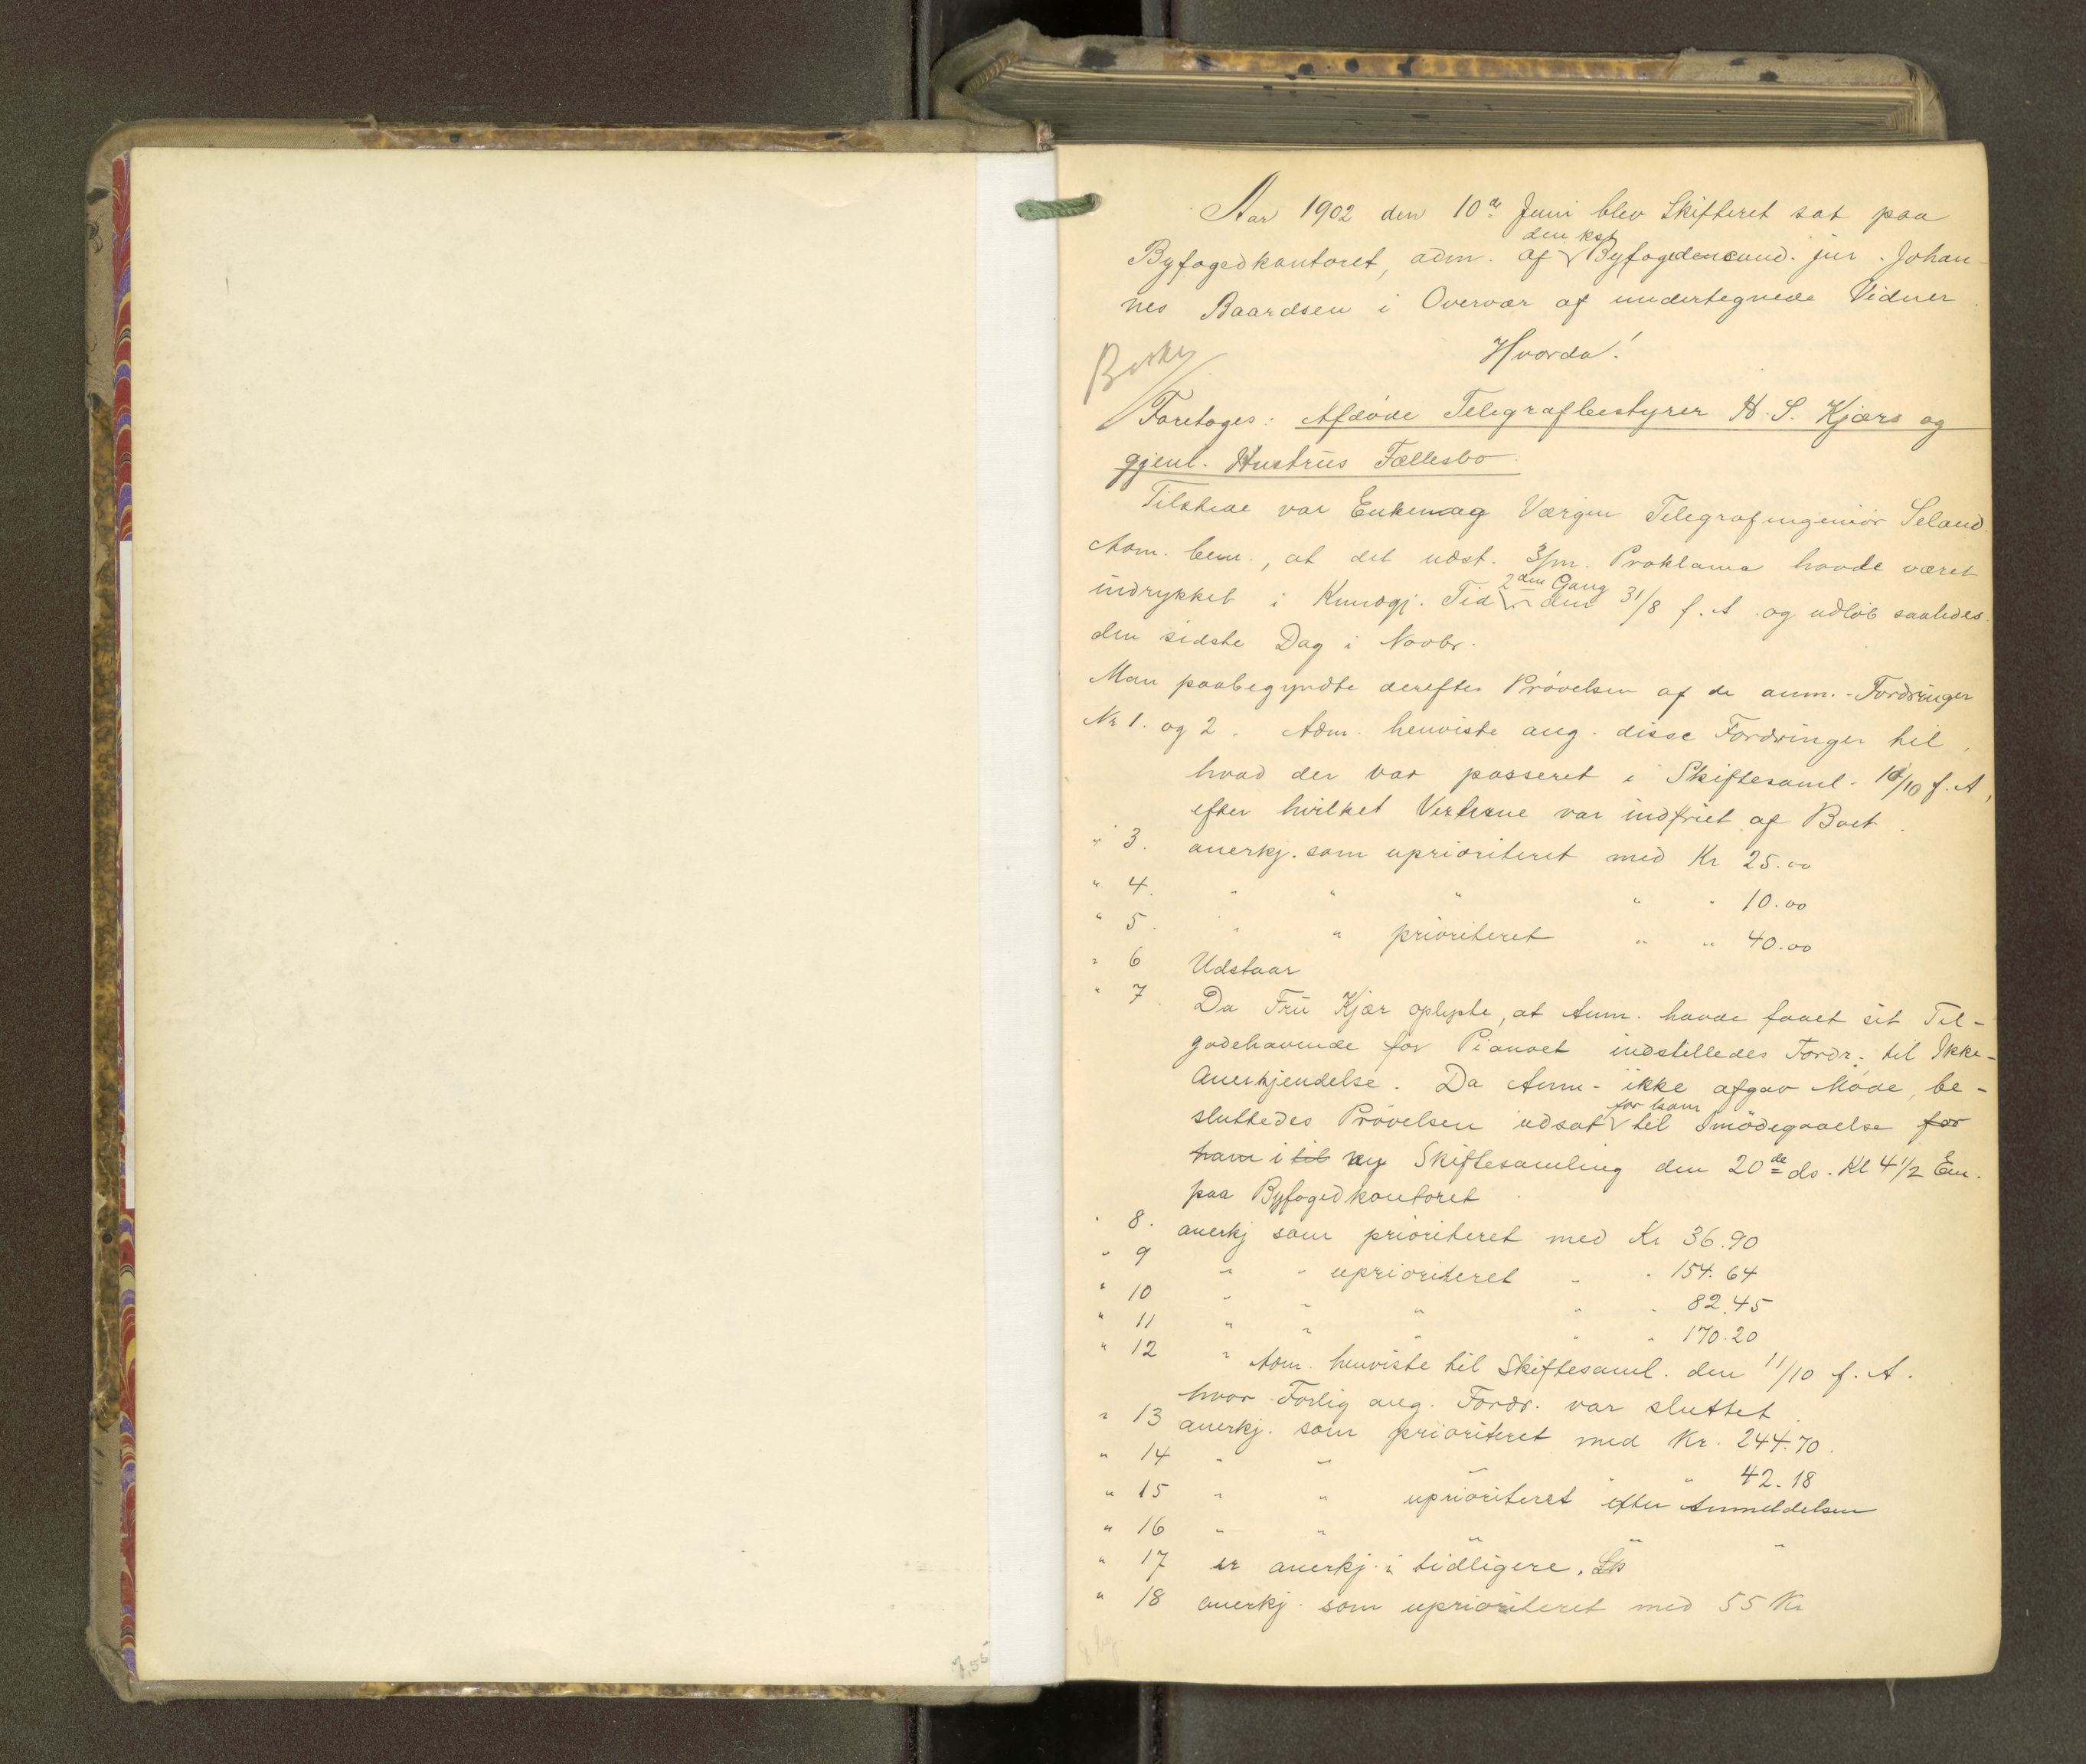 Aar 1902 den 10de Juni blev Skifteret sat paa
Byfogedkontoret, adm. af den kst Byfogden cand. jur. Johan-
nes Baardsen i Overvær af undertegnede Vidner.
Hvorda!
Foretoges: Afdøde Telegrafbestyrer H. S. Kjærs og
gjenl. Hustrus Fællesbo.
Tilstede var Enken og Værgen Telegrafingeniør Seland.
Adm. bem., at det udst. 3/m. Proklama havde været
indrykket i Kundgj. Tid 2den Gang den 31/8 f. A. og udløb saaledes
den sidste Dag i Novbr.
Man paabegyndte derefter Prøvelsen af de anm. Fordringer
Nr 1. og 2. Adm. henviste ang. disse Fordringer til,
hvad der var passeret i Skiftesaml. 10/10 f. A,
efter hvilket Vexlerne var indfriet af Boet.
" 3. anerkj. som uprioriteret med Kr 25.00
" 4. " " " " " 10.00
" 5. " " prioriteret " " 40.00
" 6 Udstaar
" 7. Da Fru Kjær oplyste, at Anm. havde faaet sit Til-
godehavende for Pianoet indstilledes Fordr. til Ikke-
Anerkjendelse. Da Anm. ikke afgav Møde, be-
sluttedes Prøvelsen udsat for ham til Imødegaaelse for
ham i til ny Skiftesamling den 20de ds. Kl 4 1/2 Em.
paa Byfogedkontoret.
" 8. anerkj som prioriteret med Kr 36.90
" 9 " " uprioriteret " " 154.64
" 10 " " " " " 82.45
" 11 " " " " " 170.20
" 12 " Adm. henviste til Skiftesaml. den 11/10 f. A.
hvor Forlig ang. Fordr. var sluttet.
" 13 anerkj. som prioriteret med Kr. 244.70.
" 14 " " " " " 42.18
" 15 " " uprioriteret efter Anmeldelsen
" 16 " " " " "
" 17 er anerkj. i tidligere. Sk
" 18 anerkj. som uprioriteret med 55 Kr
7,55